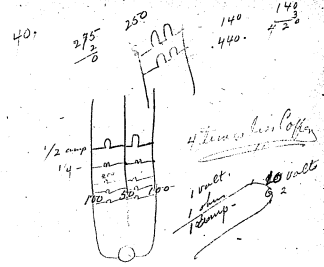 40.
275
2
0
250
140
.440.
140
3
420
1/2 amp
1/4 -
100 50 100-
4 times less Copper
1 volt.
1 ohm
1 amp-
10 volts
2